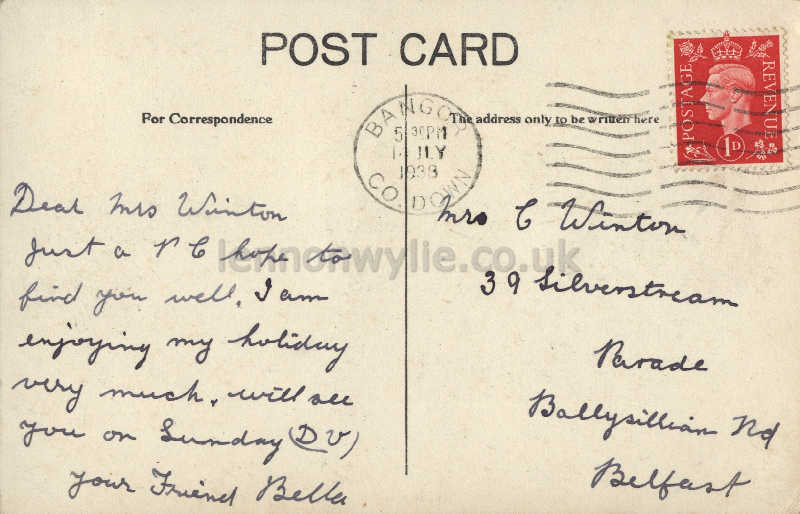 POST CARD
For Correspondence
The address only to be written here
BANGOR
5 30PM
14 JLY
1938
CO. DOWN
POSTAGE
REVENUE
1D
Dear Mrs Winton
Just a P C hope to
find you well, I am
enjoying my holiday
very much, will see
you on Sunday (D V)
your Friend Bella
Mrs C Winton
39 Silverstream
Parade
Ballysillian Rd
Belfast
lennonwylie.co.uk